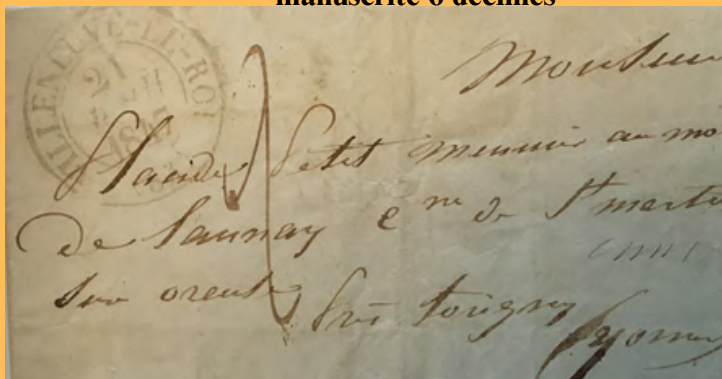 manuscrite 6 décimes
VILLENEUVE-LE-ROI
2
Monsieur
Placide Petit meunier au mo
de Launay cne de St marti
sur oreuse
Près thorigny
(yonne